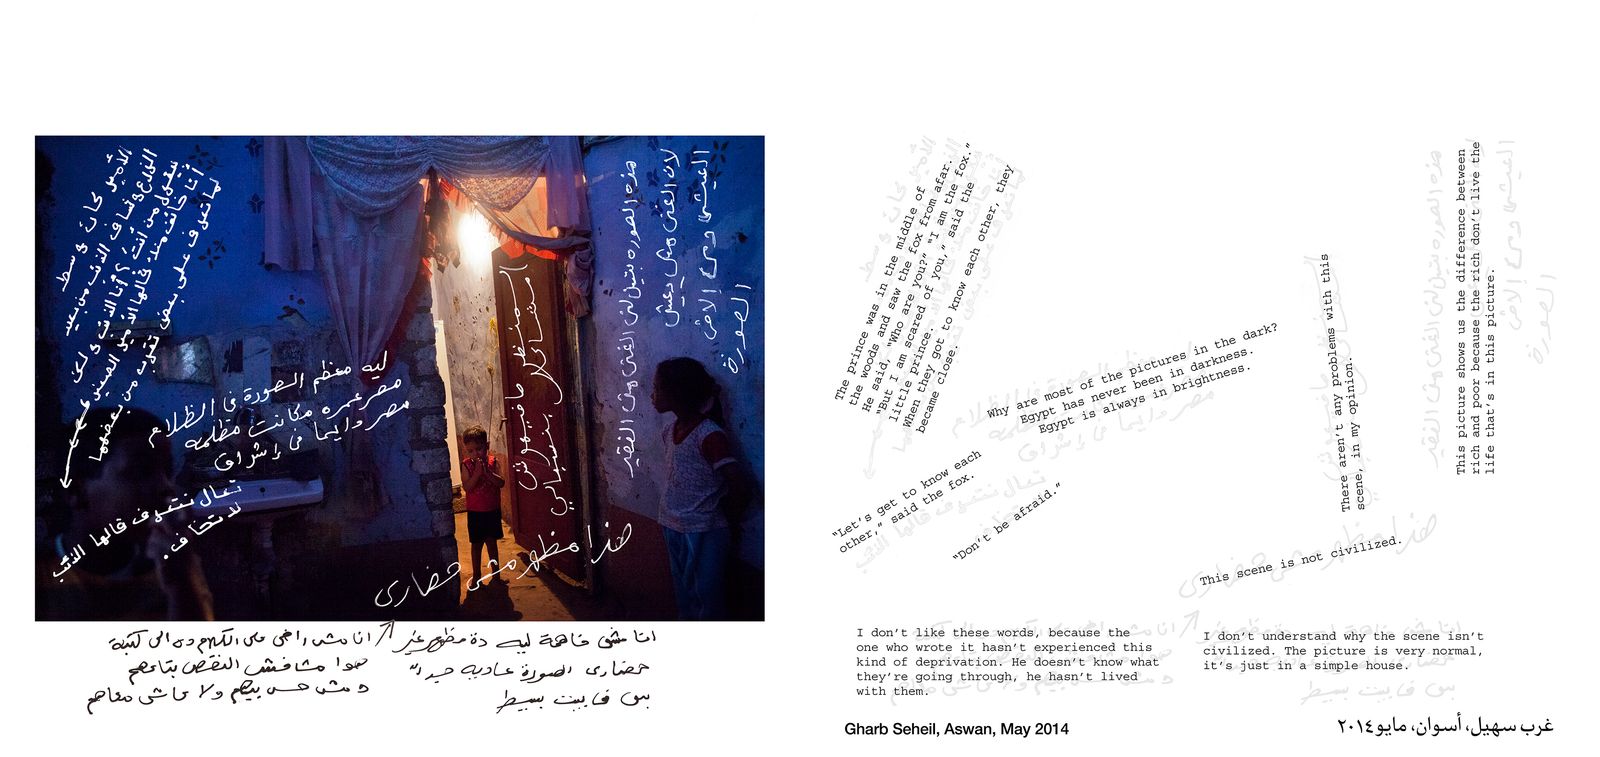 الأمير كان في وسط
الزرع و شاف الذئب من بعيد
بيقول من أنت؟ أنا الذئب و لكن
أنا خائف منك قالها الأمير الصغير
لما على بعض تقرب من بعضهما
ليه معظم الصورة في الظلام
مصر عمره مكانت مظلمه
مصر دايما في إشراق
تعال نتعرف قالها الذئب
لا تخاف.
المنظر مافيهوش
مشاكل بنسبالي
هذه الصوره الغنى من الفقير
لان الغنى مش
العيشة دى
الصورة
هذا مظهر مش حضارى
انا مش فاهمة ليه دة مظهر غير
حضارى الصورة عاديه جيداً
بس فى بيت بسيط
انا مش راضى على الكلام دة الى كتبة
هوا مشافش النقص بتاعهم
و مش حس بيهم ولا عاش معاهم
"The prince was in the middle of
the woods and saw the fox from afar.
He said, "Who are you?" "I am the fox."
"But I am scared of you," said the
little prince.
When they got to know each other, they
became close.
Why are most of the pictures in the dark?
Egypt has never been in darkness.
Egypt is always in brightness.
"Let's get to know each
other," said the fox.
"Don't be afraid."
There aren't any problems with this
scene, in my opinion.
This picture shows us the difference between
rich and poor because the rich don't live the
life that's in this picture.
This scene is not civilized.
I don't like these words, because the
one who wrote it hasn't experienced this
kind of deprivation. He doesn't know what
they're going through, he hasn't lived
with them.
I don't understand why the scene isn't
civilized. The picture is very normal,
it's just in a simple house.
Gharb Seheil, Aswan, May 2014
غرب سهيل، أسوان، مايو ٢٠١٤